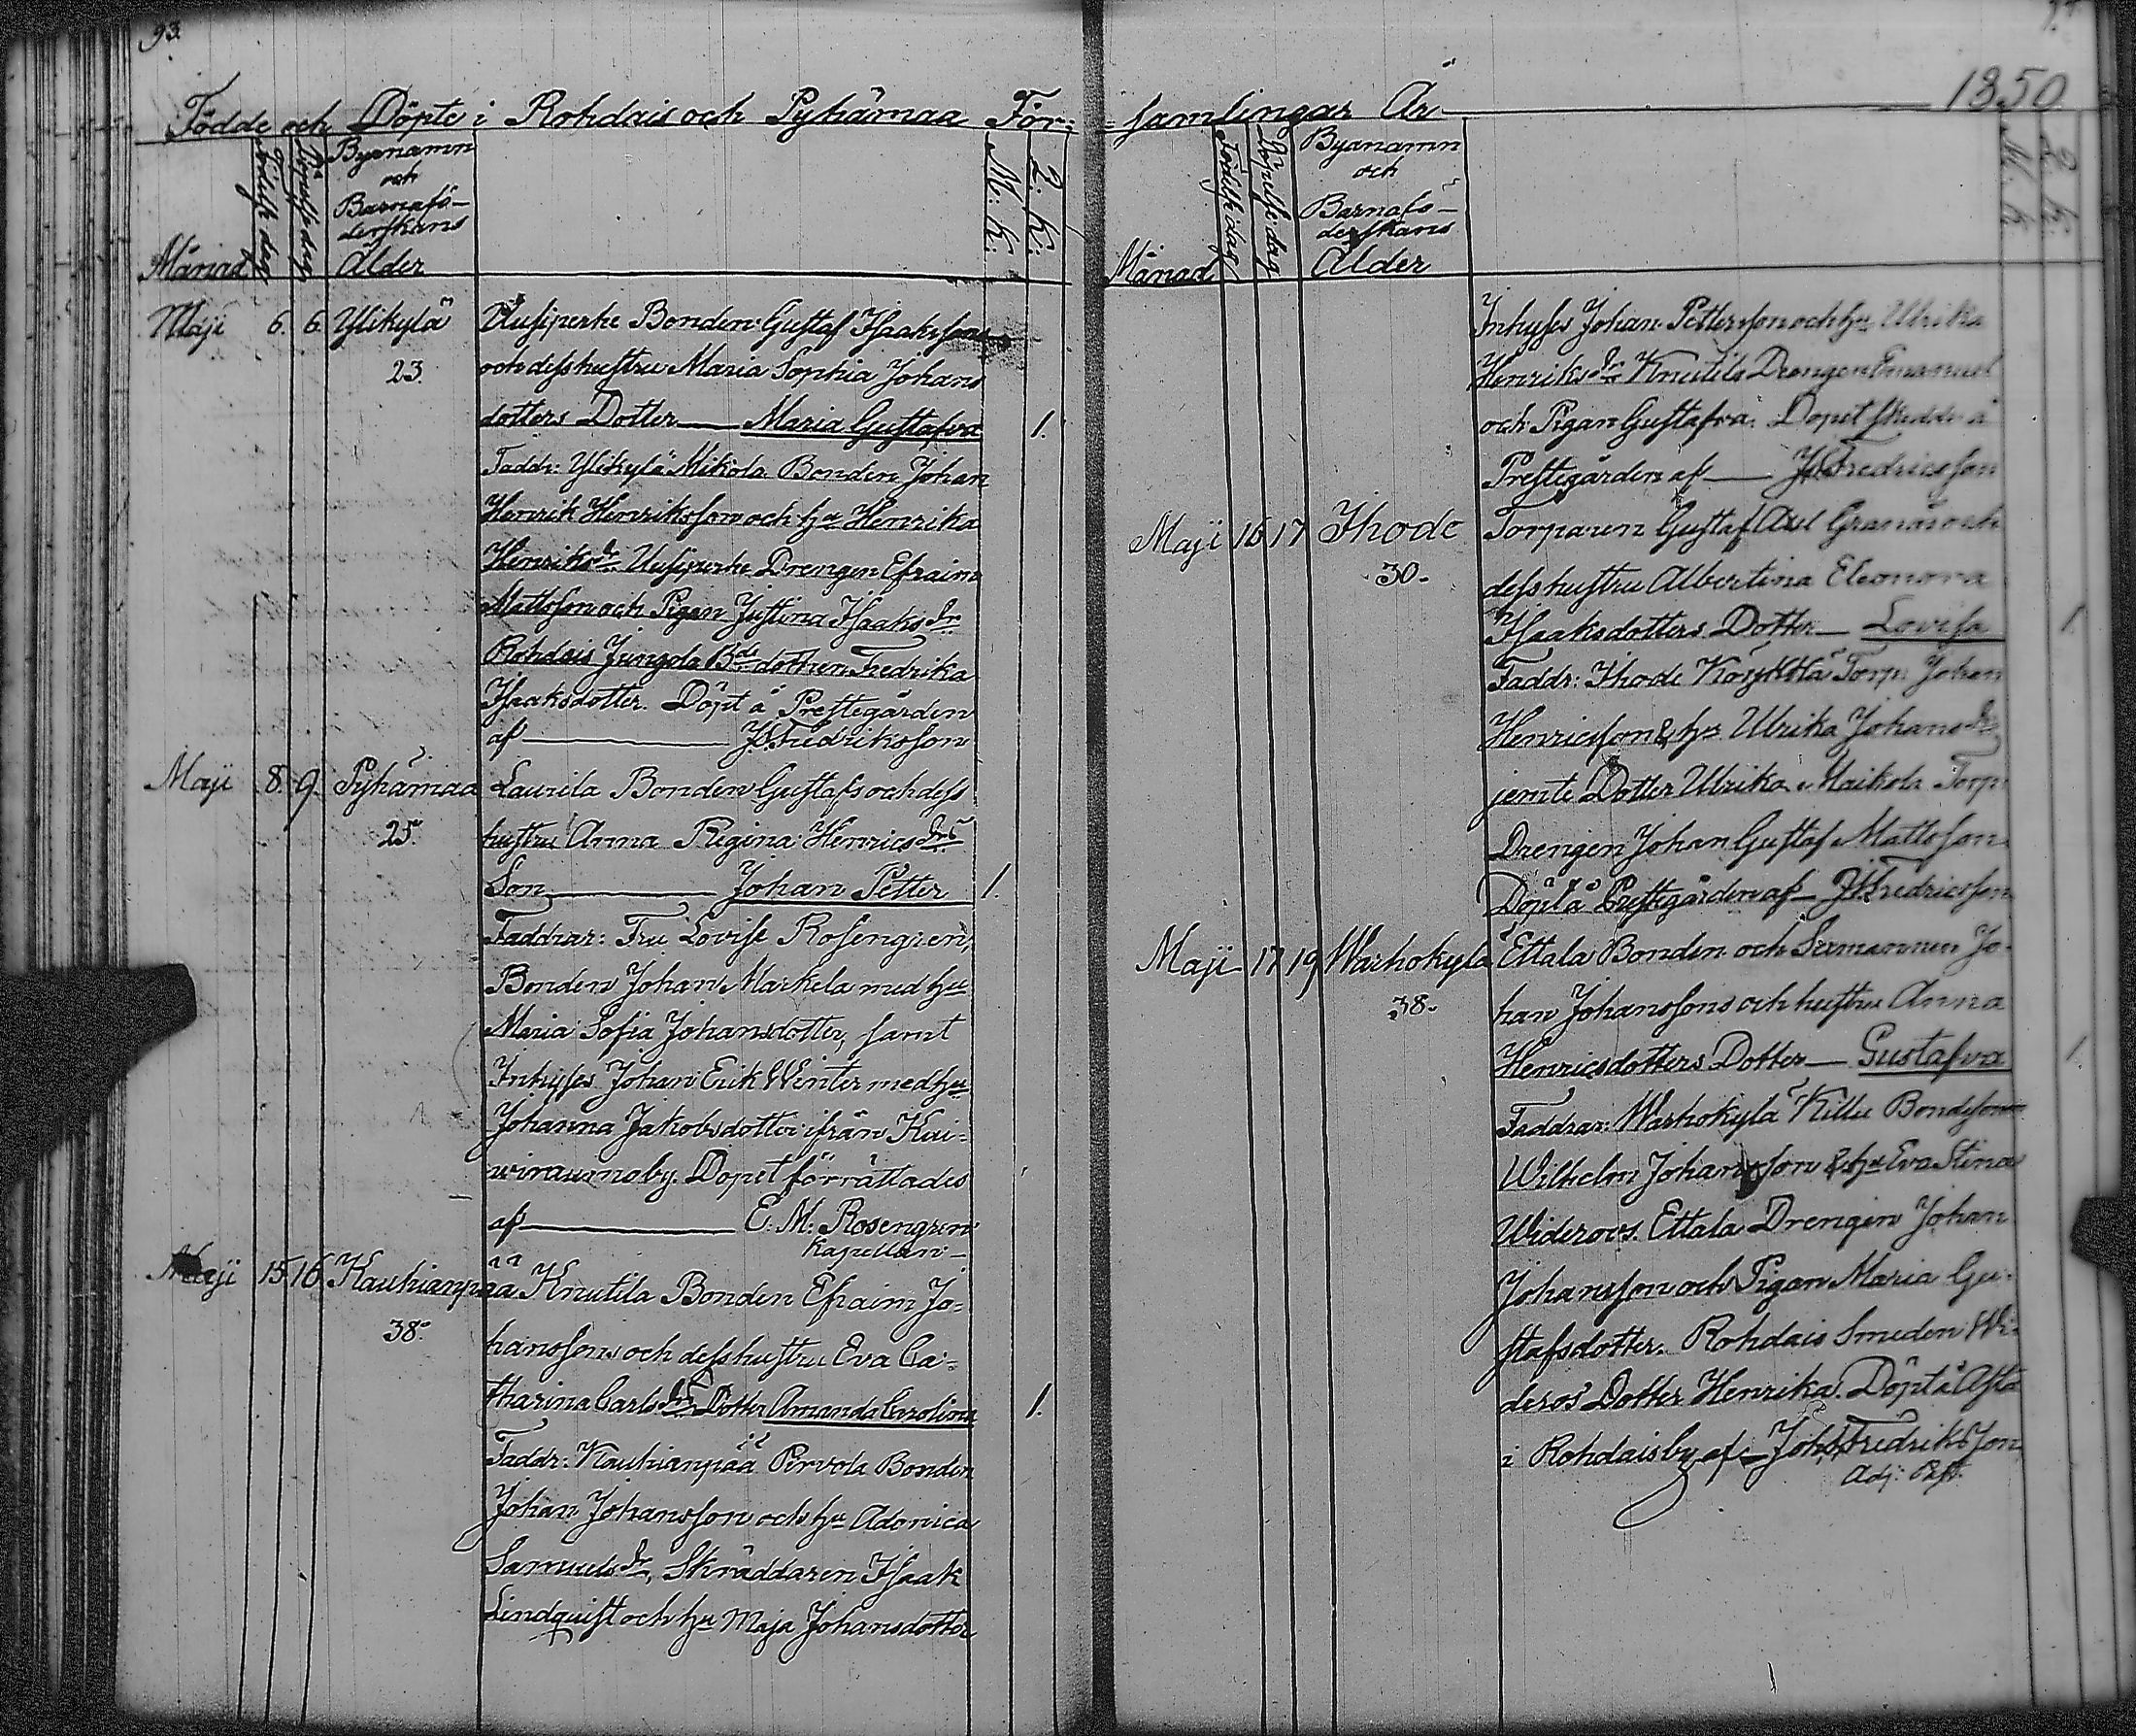 93.
Födde och Döpte i Rohdais och Pyhämaa För:
Månad
Födelse dag
Döpelse dag
Byanamn
och
Barnafö-
derskans
Ålder
M. K.
Q. K.
Maji 6. 6. Ylikylä
23.
Uusiperhe Bonden Gustaf Isaakssons
och dess hustru Maria Sophia Johans
dotters Dotter — Maria Gustafva 1.
Faddr: Ylikylä Mikola Bonden Johan
Henrik Henriksson och hu Henrika
Henriksdr Uusiperhe Drengen Efraim
Mattsson och Pigan Justina Isaaksdr
Rohdais Jungola Bde dottren Fredrika
Isaaksdotter. Döpt å Prestegården
af — J. Fredriksson
Maji 8. 9. Pyhämaa
25.
Laurila Bonden Gustafs och dess
hustru Anna Regina Henricsdrs
Son — Johan Petter 1.
Faddrar: Fru Lovise Rosengren,
Bonden Johan Markela med hu
Maria Sofia Johansdotter, samt
Inhyses Johan Erik Winter med hu
Johanna Jakobsdotter ifrån Kui-
wiraumo by. Dopet förrättades
af — E. M. Rosengren
Kapellan —
Maji 15. 16. Kauhianpää
38.
Knutila Bonden Efraim Jo-
hanssons och dess hustru Eva Ca-
tharina Carlsdrs Dotter Amanda Carolina 1.
Faddr: Kauhianpää Pirvola Bonden
Johan Johansson och hu Adonica
Samuelsdr, Skräddaren Isaak
Lindquist och hu Maja Johansdotter
samlingar År — 1850
Månad
Födelse dag
Döpelse dag
Byanamn
och
Barnafö-
derskans
Ålder
M. K.
Q. K.
Inhyses Johan Pettersson och hu Ulrika
Henriksdr Knutila Drengen Emanuel
och Pigan Gustafva. Dopet skedde å
Prestegården af — J. Fredricsson
Maji 16 17 Ihode
30.
Torparen Gustaf Axel Granas och
dess hustru Albertina Eleonora
Isaaksdotters Dotter — Lovisa 1.
Faddr: Ihode Torp: Johan
Henricsson & hu Ulrika Johansdr
jemte Dotter Ulrika, Maikola Torp:
Drengen Johan Gustaf Mattsson.
Döpt å Prestegården af — J. Fredricsson
Maji 17 19 Warhokylä
38.
Ettala Bonden och Sexmannen Jo-
han Johanssons och hustru Anna
Henricsdotters Dotter — Gustafva 1.
Faddrar: Warhokylä Killu Bondeson
Wilhelm Johansson & hu Eva Stina
Wideroos. Ettala Drengen Johan
Johansson och Pigan Maria Gu-
stafsdotter. Rohdais Smeden Wi-
deros Dotter Henrika. Döpt å
i Rohdaisby af — Joh. Fredriksson
Adj: Past.